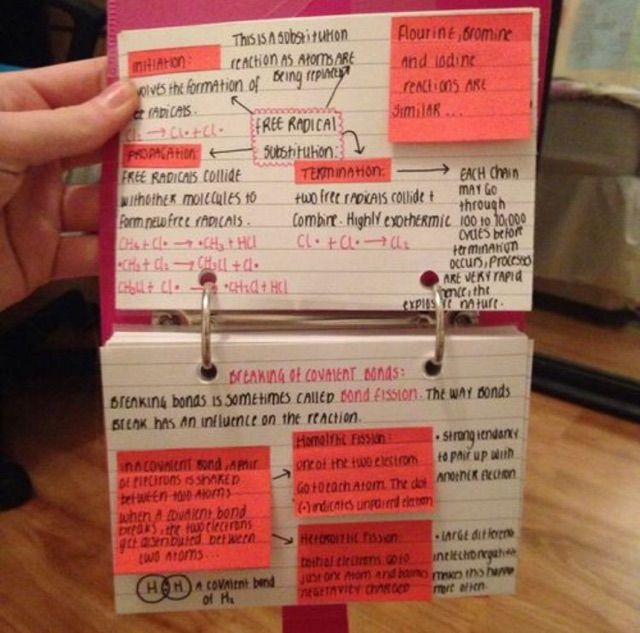 THIS IS A SUBSTITUTION
REACTION AS ATOMS ARE
BEING REPLACED
INITIATION:
VOLVES THE FORMATION OF
EE RADICALS.
Cl₂ → Cl• + Cl•
FLOURINE, BROMINE
AND IODINE
REACTIONS ARE
SIMILAR ...
FREE RADICAL
SUBSTITUTION:
PROPAGATION:
FREE RADICALS COLLIDE
WITH OTHER MOLECULES TO
FORM NEW FREE RADICALS.
CH₄ + Cl• → •CH₃ + HCl
•CH₃ + Cl₂ → CH₃Cl + Cl•
CH₃Cl + Cl• → •CH₂Cl + HCl
TERMINATION:
TWO FREE RADICALS COLLIDE +
COMBINE. HIGHLY EXOTHERMIC
Cl• + Cl• → Cl₂
EACH CHAIN
MAY GO
THROUGH
100 TO 10,000
CYCLES BEFORE
TERMINATION
OCCURS, PROCESSES
ARE VERY RAPID
HENCE, THE
EXPLOSIVE NATURE.
BREAKING OF COVALENT BONDS:
BREAKING BONDS IS SOMETIMES CALLED BOND FISSION. THE WAY BONDS
BREAK HAS AN INFLUENCE ON THE REACTION.
IN A COVALENT BOND, A PAIR
OF ELECTRONS IS SHARED
BETWEEN TWO ATOMS
WHEN A COVALENT BOND
BREAKS, THE TWO ELECTRONS
GET DISTRIBUTED BETWEEN
TWO ATOMS...
H H A COVALENT BOND
OF H₂
HOMOLYTIC FISSION:
ONE OF THE TWO ELECTRON
GO TO EACH ATOM. THE DOT
(•) INDICATES UNPAIRED ELECTRON
• STRONG TENDANCY
TO PAIR UP WITH
ANOTHER ELECTRON
HETEROLYTIC FISSION:
BOTH ELECTRONS GO TO
JUST ONE ATOM AND
NEGATIVITY CHARGED
• LARGE DIFFERENCE
IN ELECTRONEGATIV
MAKES THIS HAPPEN
MORE OFTEN.